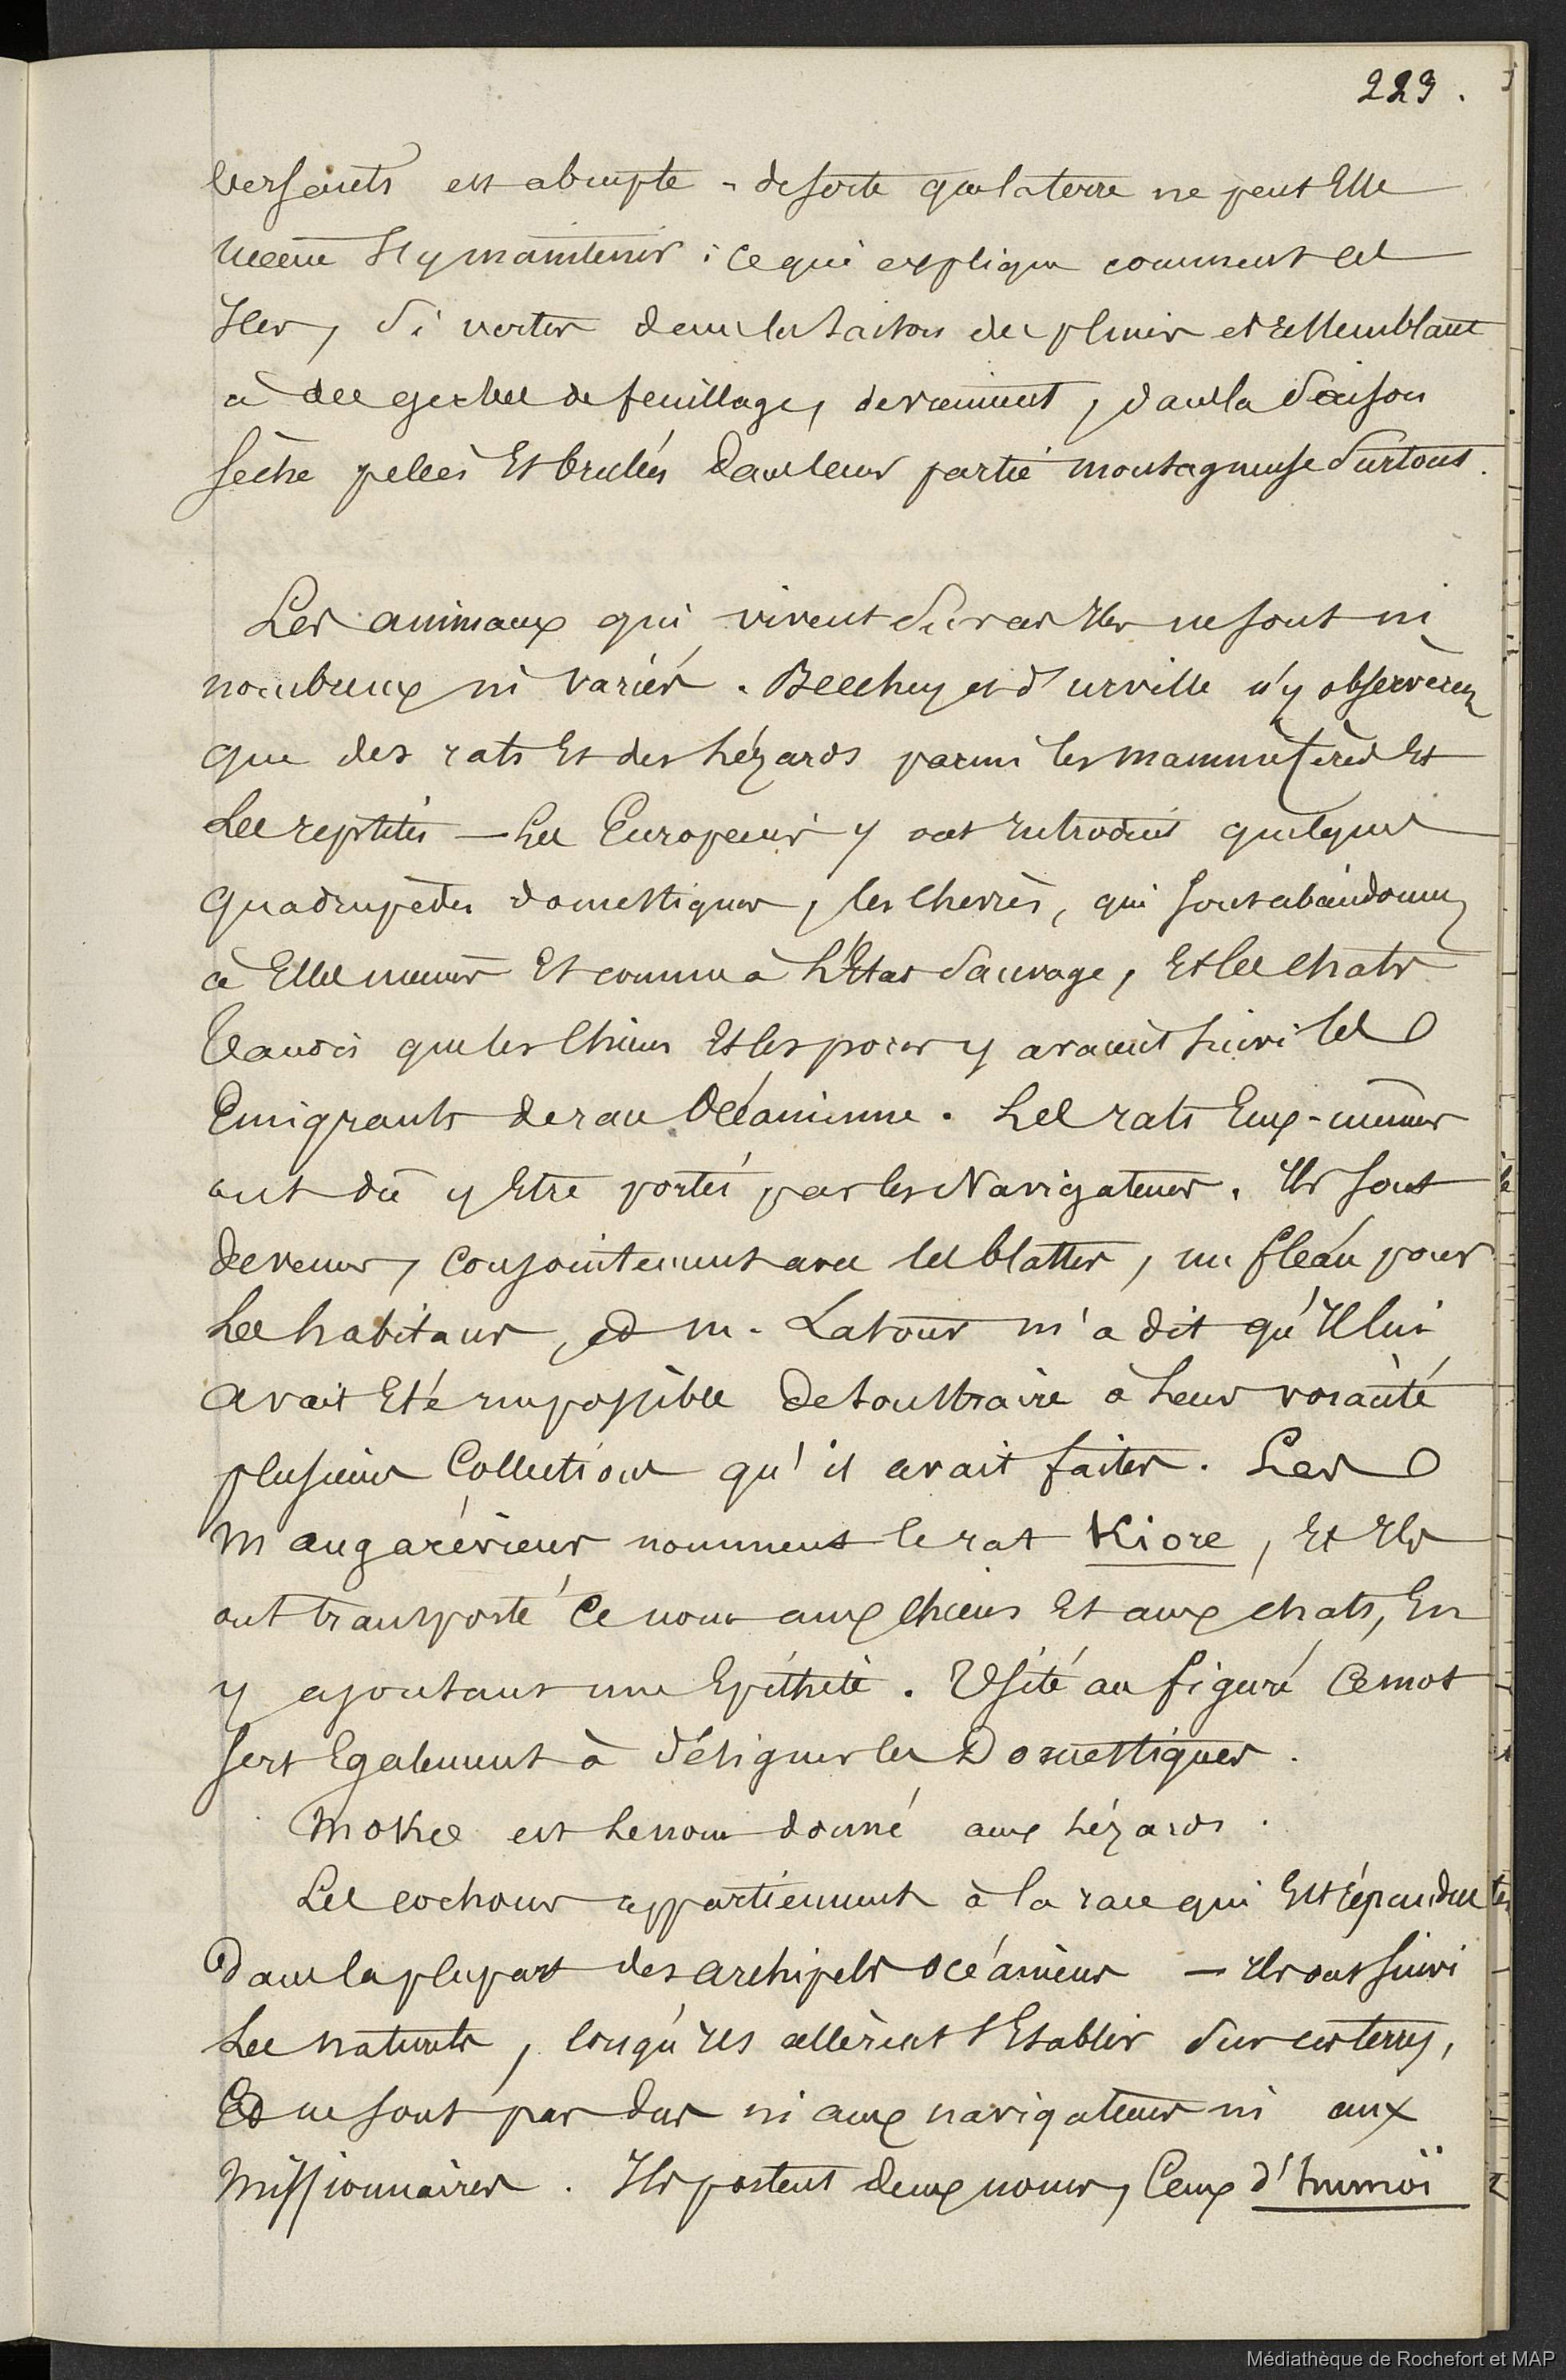 223.
versants est abrupte - de sorte que la terre ne peut Elle
même s'y maintenir ; ce qui explique comment ces
Iles, si vertes dans la saison des pluies et ressemblant
à des gerbes de feuillage, deviennent, dans la saison
sèche pelées Et brulées dans leur partie montagneuse surtout.
Les animaux qui vivent sur ces Iles ne sont ni
nombreux ni variés. Beechey et d'urville n'y observèrent
que des rats Et des Lézards parmi les mammifères Et
Les reptiles — Les Européens y ont introduit quelques
quadrupèdes domestiques, les chèvres, qui sont abandonnées
à Elles mêmes Et comme à l'Etat sauvage, Et les chats
tandis que les chiens Et les porcs y avaient suivi les
Emigrants de race Océanienne. Les rats Eux-mêmes
ont dû y Etre portés par les Navigateurs. Ils sont
devenus, conjointement avec les blattes, un fléau pour
Les habitans, et m. Latour m'a dit qu'Il lui
avait Eté impossible de soustraire à Leur voracité
plusieurs Collections qu'il avait faites. Les
Mangaréviens nomment le rat Kiore, Et Ils
ont transporté ce nom aux chiens Et aux chats, En
y ajoutant une Epithète. Usité au figuré Ce mot
sert Egalement à désigner les Domestiques.
Moke est Le nom donné aux Lézards.
Les cochons appartiennent à la race qui Est répandue
dans la plupart des archipels océaniens — Ils ont suivi
Les naturels, lorsqu'Ils allèrent s'Etablir sur ces terres,
Et ne sont pas dus ni aux navigateurs ni aux
Missionnaires. Ils portent deux noms, Ceux d'
Médiathèque de Rochefort et MAP